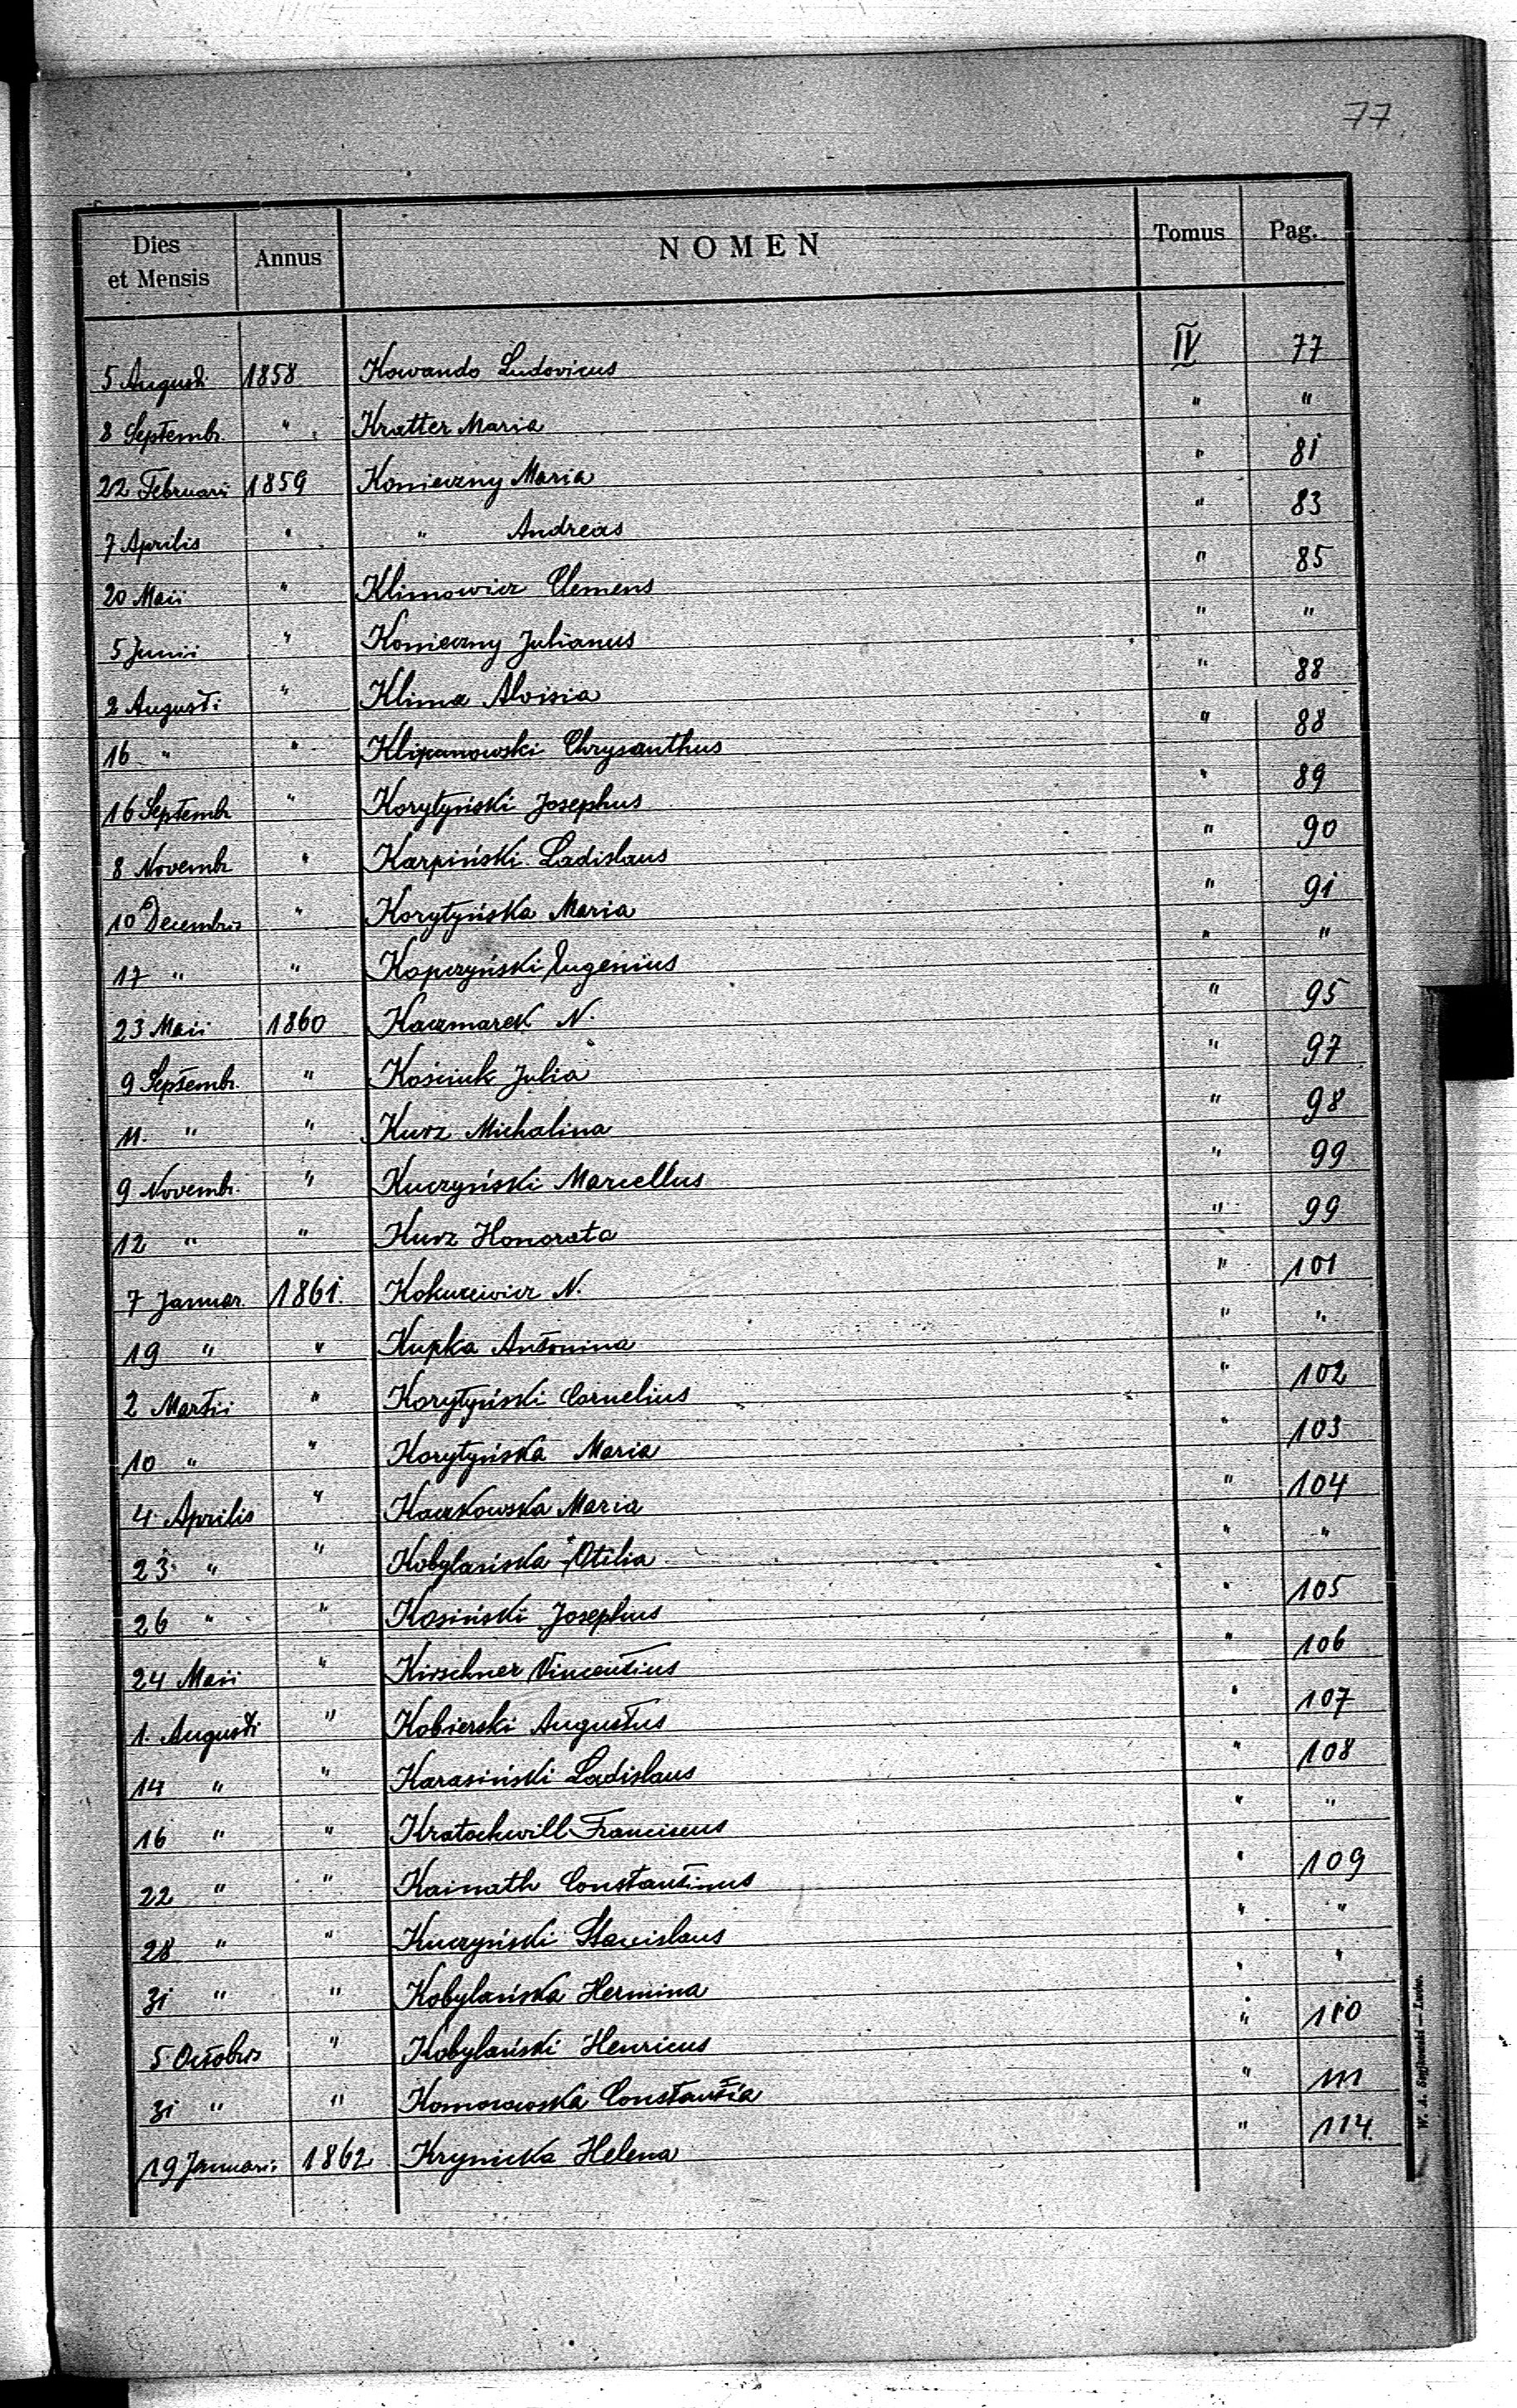 77
Dies et Mensis Annus NOMEN Tomus Pag.
5 Augusti 1858 Kowando Ludovicus IV 77
8 Septembr. " Kratter Maria " "
22 Februarii 1859 Konieczny Maria " 81
7 Aprilis " " Andreas " 83
20 Maii " Klimowicz Clemens " 85
5 Junii " Konieczny Julianus " "
2 Augusti " Klima Aloisia " 88
16 " " Chrysanthus " 88
16 Septembr " Korytyński Josephus " 89
8 Novembr " Karpiński Ladislaus " 90
10 Decembris " Korytyńska Maria " 91
17 " " Kopczyński Eugenius " "
23 Maii 1860 Kaczmarek N. " 95
9 Septembr. " Kościuk Julia " 97
11. " " Kurz Michalina " 98
9 Novembr. " Kuczyński Marcellus " 99
12 " " Kurz Honorata " 99
7 Januar. 1861. Kokurewicz N. " 101
19 " " Kupka Antonina " "
2 Martii " Korytyński Cornelius " 102
10 " " Korytyńska Maria " 103
4 Aprilis " Kaczkowska Maria " 104
23 " " Kobylańska Otilia " "
26 " " Kosiński Josephus " 105
24 Maii " Kirschner Vincentius " 106
1. Augusti " Kobierski Augustus " 107
14 " " Karasiński Ladislaus " 108
16 " " Kratochwill Franciscus " "
22 " " Kainath Constantinus " 109
28 " " Kuczyński Stanislaus " "
31 " " Kobylańska Hermina " "
5 Octobris " Kobylański Henricus " 110
31 " " Komorowska Constantia " 111
19 Januarii 1862 Krynicka Helena " 114